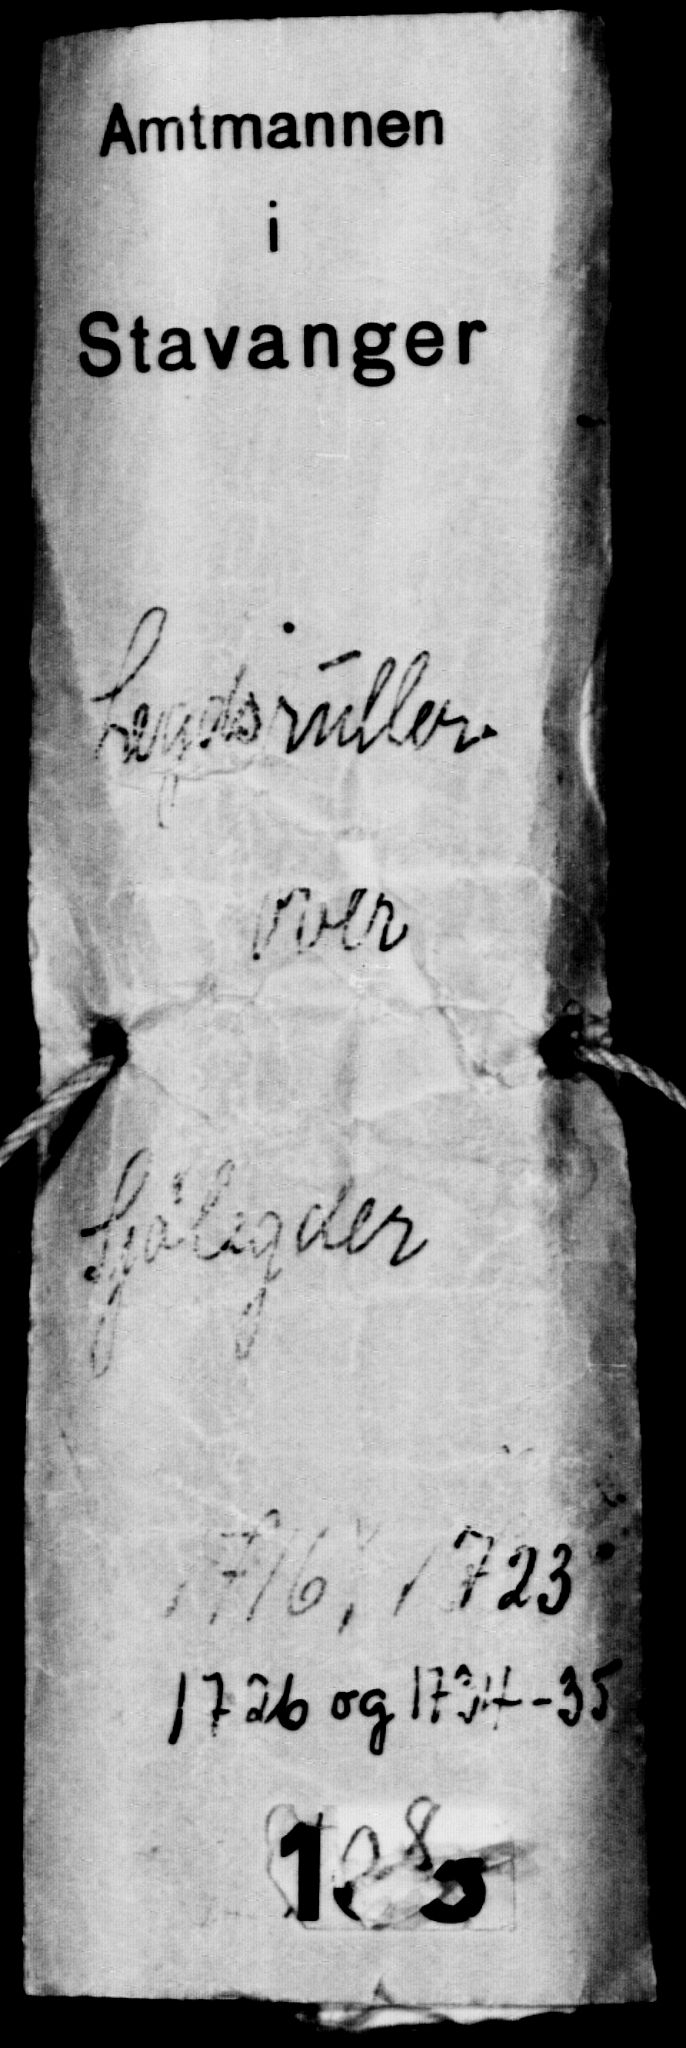 Amtmannen
i
Stavanger
Legdsrüller
over
Sjølegder
1716, 1723
1726 og 1734-35